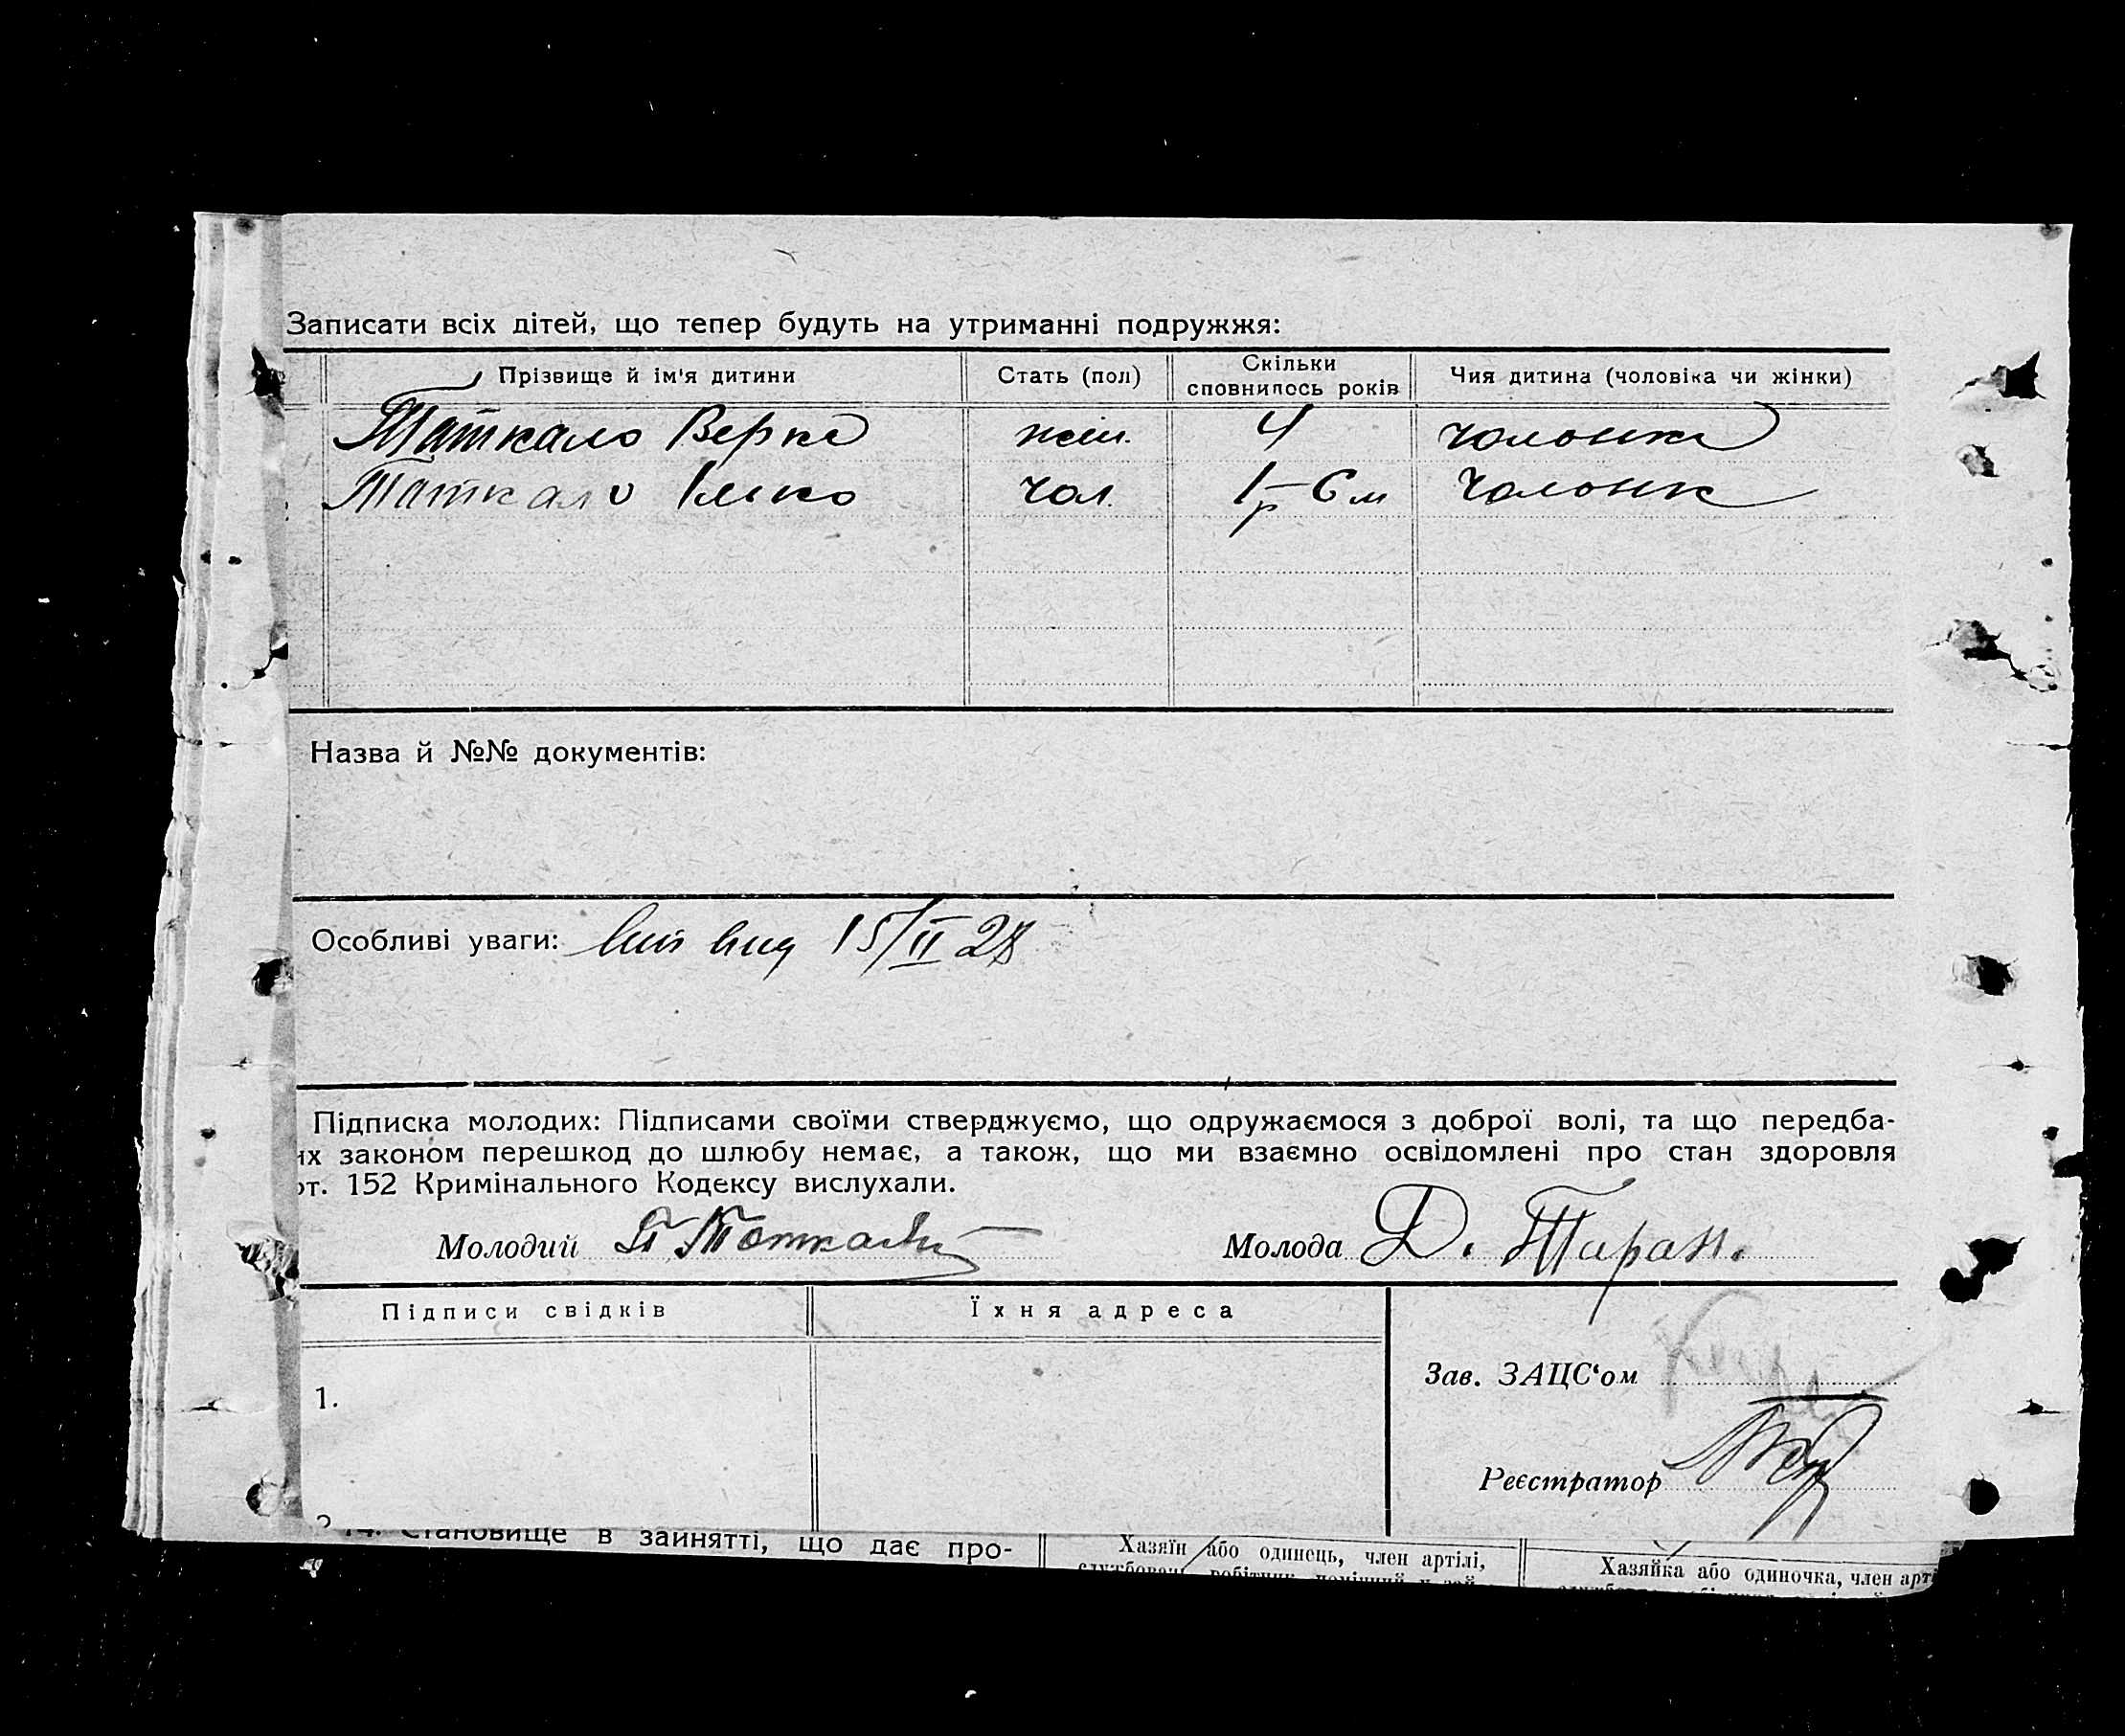 Записати всіх дітей, що тепер будуть на утриманні подружжя:
Прізвище й ім'я дитини Стать (пол) Скільки сповнилось років Чия дитина (чоловіка чи жінки)
Таткало Верка жін. 4
Таткало Ілько чол. 1 р 6 м
Назва й №№ документів:
Особливі уваги: 15/II 28
Підписка молодих: Підписами своїми стверджуємо, що одружаємося з доброї волі, та що передба-
их законом перешкод до шлюбу немає, а також, що ми взаємно освідомлені про стан здоровля
от. 152 Кримінального Кодексу вислухали.
Молодий Молода Д. Таран.
Підписи свідків Їхня адреса
Зав. ЗАЦС'ом
1.
Реєстратор
2
14. Становище в занятті, що дає про- Хазяїн або одинець, член артілі, Хазяйка або одиночка, член арті